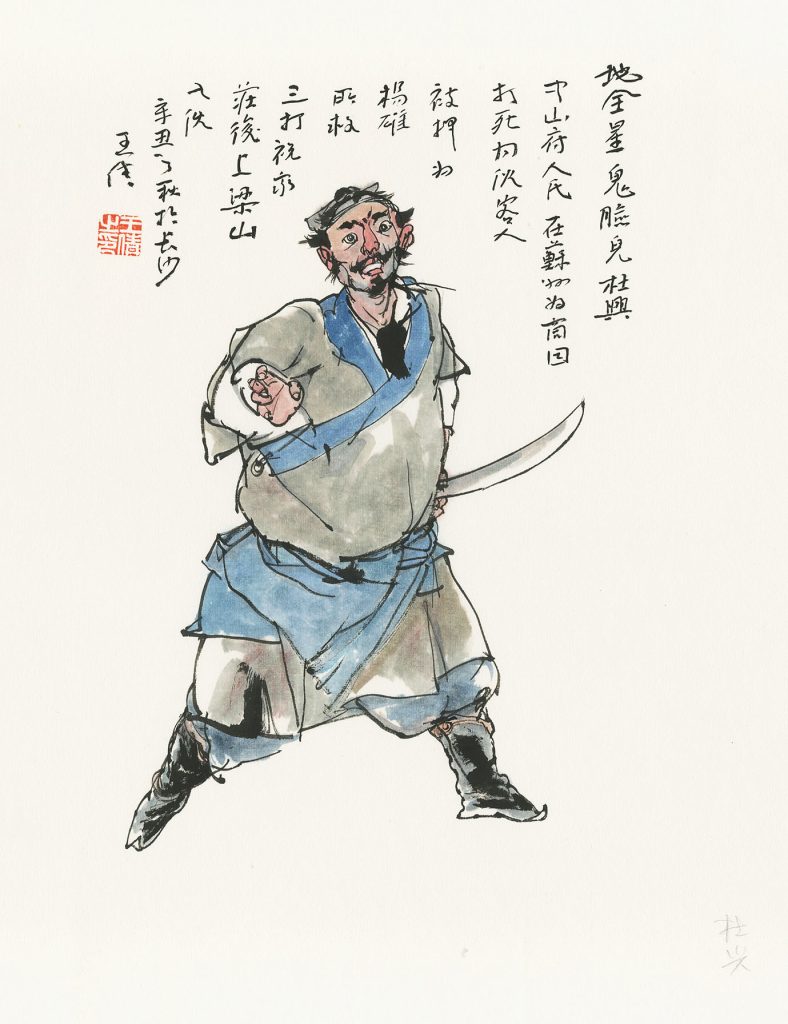 地全星鬼臉兒杜興
中山府人氏 在蘇州为商因
打死同伙客人
被押为
楊雄
所救
三打祝家
莊後上梁山
入伙
辛丑之秋於长沙
王
杜兴